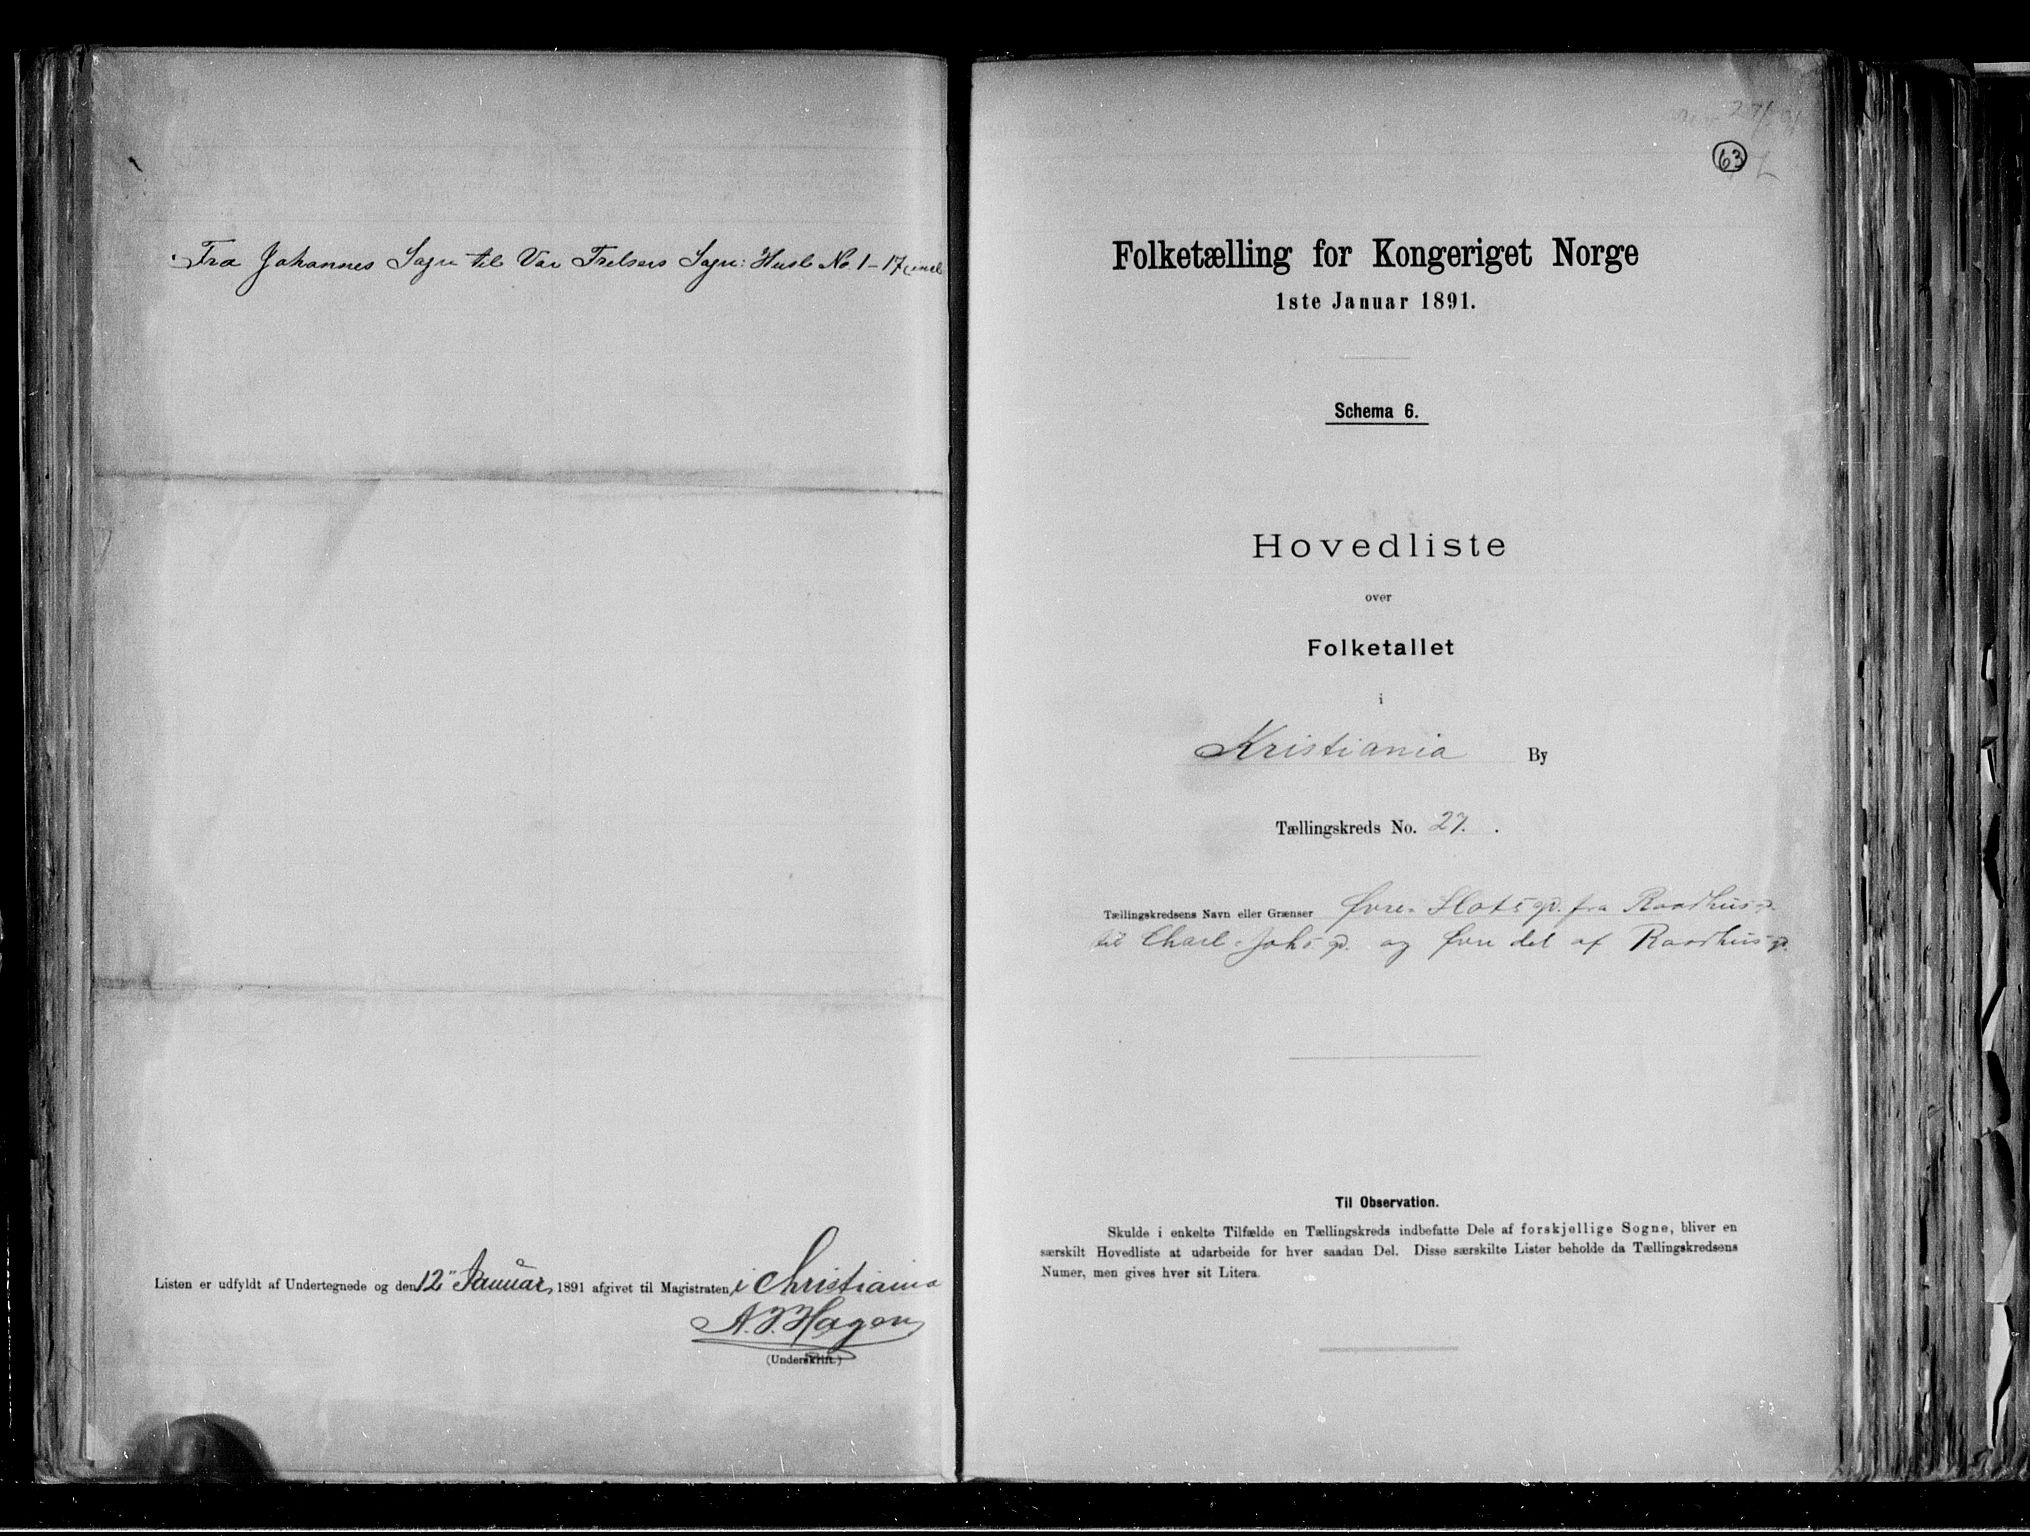 Fra Johannes Sogn til Vor Frelsers Sogn: Husl. No. 1–17 incl
Listen er udfyldt af Undertegnede og den 12" Januar 1891 afgivet til Magistraten, i Christiania
A. J. Hagen
(Underskrift.)
27/
63
Folketælling for Kongeriget Norge
1ste Januar 1891.
Schema 6.
Hovedliste
over
Folketallet
i
Kristiania By
Tællingskreds No. 27.
Tællingskredsens Navn eller Grænser Øvre Slotsgd. fra Raadhusgd.
til Charl Johs gd. og øvre del af Raadhusgd.
Til Observation.
Skulde i enkelte Tilfælde en Tællingskreds indbefatte Dele af forskjellige Sogne, bliver en
særskilt Hovedliste at udarbeide for hver saadan Del. Disse særskilte Lister beholde da Tællingskredsens
Numer, men gives hver sit Litera.